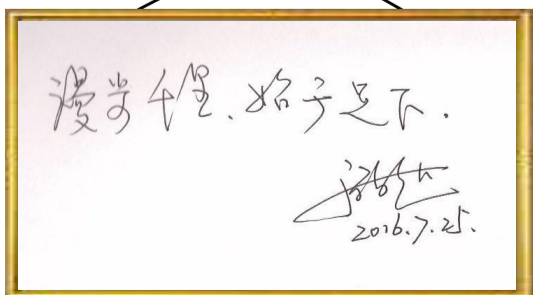 漫步千里、始于足下.
2016.7.25.